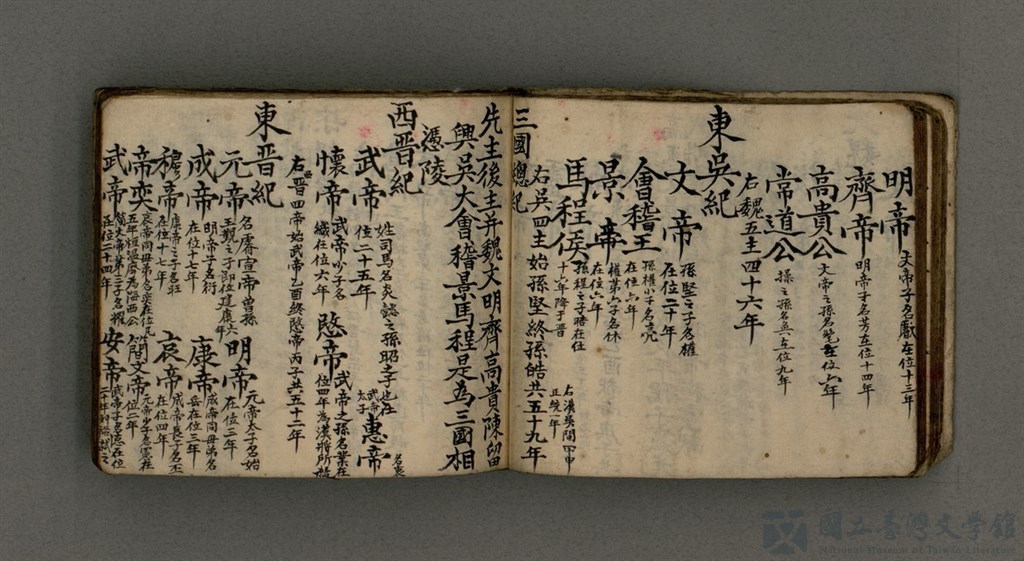 明帝 文帝子名叡在位十三年
齊帝 明帝子名芳在位十四年
高貴公 文帝之孫名髦在位六年
常道公 操之孫名奐在位九年
右魏五主四十六年
東吳紀
文帝 孫堅之子名權在位二十年
會稽王 孫權小子名亮在位六年
景帝 權第六子名休在位六年
馬程侯 孫程之子晧在位十六年降于晉
右吳四主始孫堅終孫皓共五十九年
右漢吳間甲申正統一年
三國總紀
先主後主并魏文明齊高貴陳留
興吳大會稽景馬程是為三國相
憑陵
西晉紀
武帝 姓司馬名炎懿之孫昭之子也在位二十五年
惠帝 名衷武帝太子
懷帝 武帝少子名熾在位六年
愍帝 武帝之孫名業在位四年為漢將所殺
右西晋四帝始武帝乙酉終愍帝丙子共五十二年
東晉紀
元帝 名睿宣帝曾孫王覲之子即位建康六
明帝 元帝太子名紹在位三年
成帝 明帝子名衍在位十七年
康帝 成帝同母弟名岳在位三年
穆帝 康帝之子名聃在位十七年
哀帝 成帝長子名丕在位四年
帝奕 哀帝同母弟名奕在位凡五年桓溫廢為海西公
簡文帝 元帝少子名昱在位二年
武帝 簡文帝第三子名耀在位二十四年
安帝 武帝子名德在位二十年
國立臺灣文學館
National Museum of Taiwan Literature